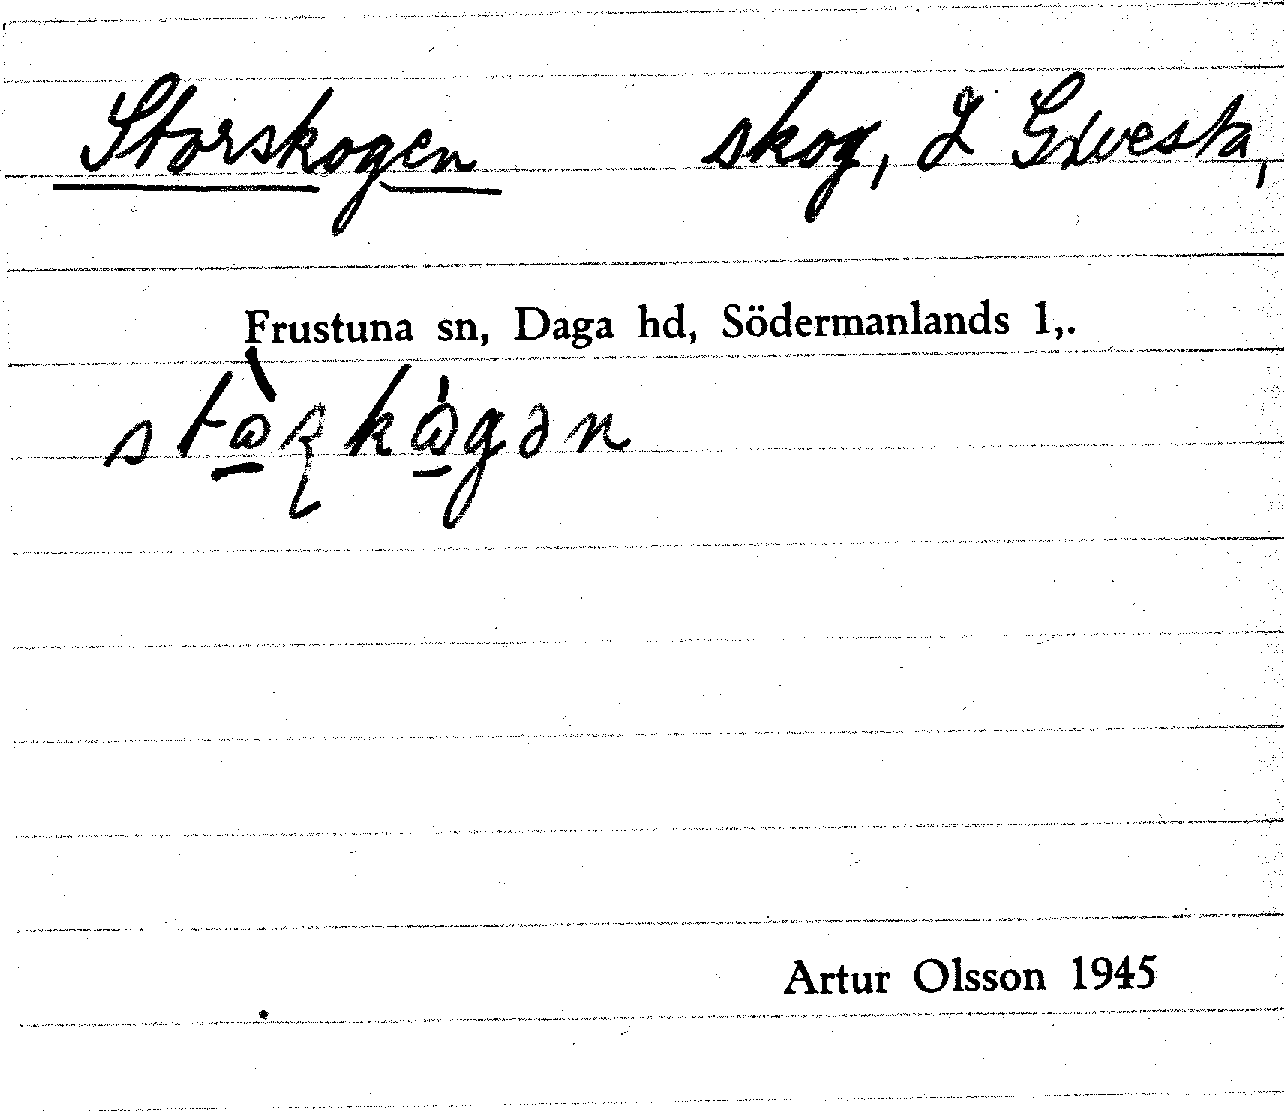 Storskogen skog, L Grvesta,
Frustuna sn, Daga hd, Södermanlands l,.
Artur Olsson 1945